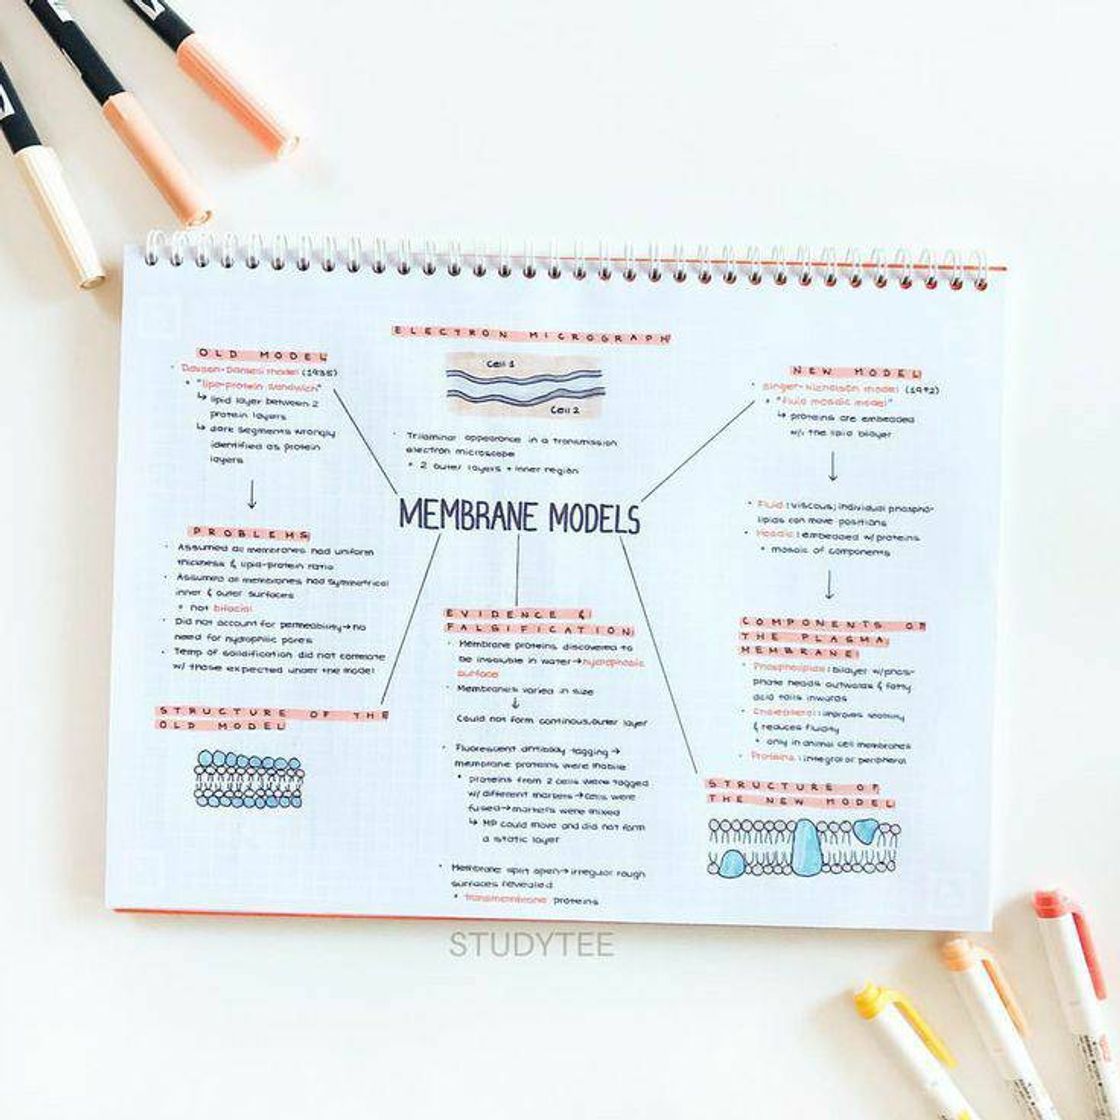 ELECTRON MICROGRAPH
Cell 1
Cell 2
• Trilaminar appearance in a transmission
electron microscope
• 2 outer layers + inner region
OLD MODEL
• Davson-Danielli model (1935)
• "lipo-protein sandwich"
↳ lipid layer between 2
protein layers
↳ dark segments wrongly
identified as protein
layers
↓
PROBLEMS
• Assumed all membranes had uniform
thickness & lipid-protein ratio
• Assumed all membranes had symmetrical
inner & outer surfaces
• not bifacial
• Did not account for permeability → no
need for hydrophilic pores
• Temp of solidification did not correlate
w/ those expected under the model
STRUCTURE OF THE
OLD MODEL
MEMBRANE MODELS
EVIDENCE &
FALSIFICATION
• Membrane proteins discovered to
be insoluble in water → hydrophobic
surface
• Membranes varied in size
↓
Could not form continous outer layer
• Fluorescent antibody tagging →
membrane proteins were mobile
• proteins from 2 cells were tagged
w/ different markers → cells were
fused → markers were mixed
↳ MP could move and did not form
a static layer
• Membrane split open → irregular rough
surfaces revealed
• transmembrane proteins
NEW MODEL
• Singer-Nicholson model (1972)
• "fluid mosaic model"
↳ proteins are embedded
w/i the lipid bilayer
↓
• Fluid: viscous; individual phospho-
lipids can move positions
• Mosaic: embedded w/ proteins
• mosaic of components
↓
COMPONENTS OF
THE PLASMA
MEMBRANE
• Phospholipids: bilayer w/ phos-
phate heads outwards & fatty
acid tails inwards
• Cholesterol: improves stability
& reduces fluidity
• only in animal cell membranes
• Proteins: integral or peripheral
STRUCTURE OF
THE NEW MODEL
STUDYTEE